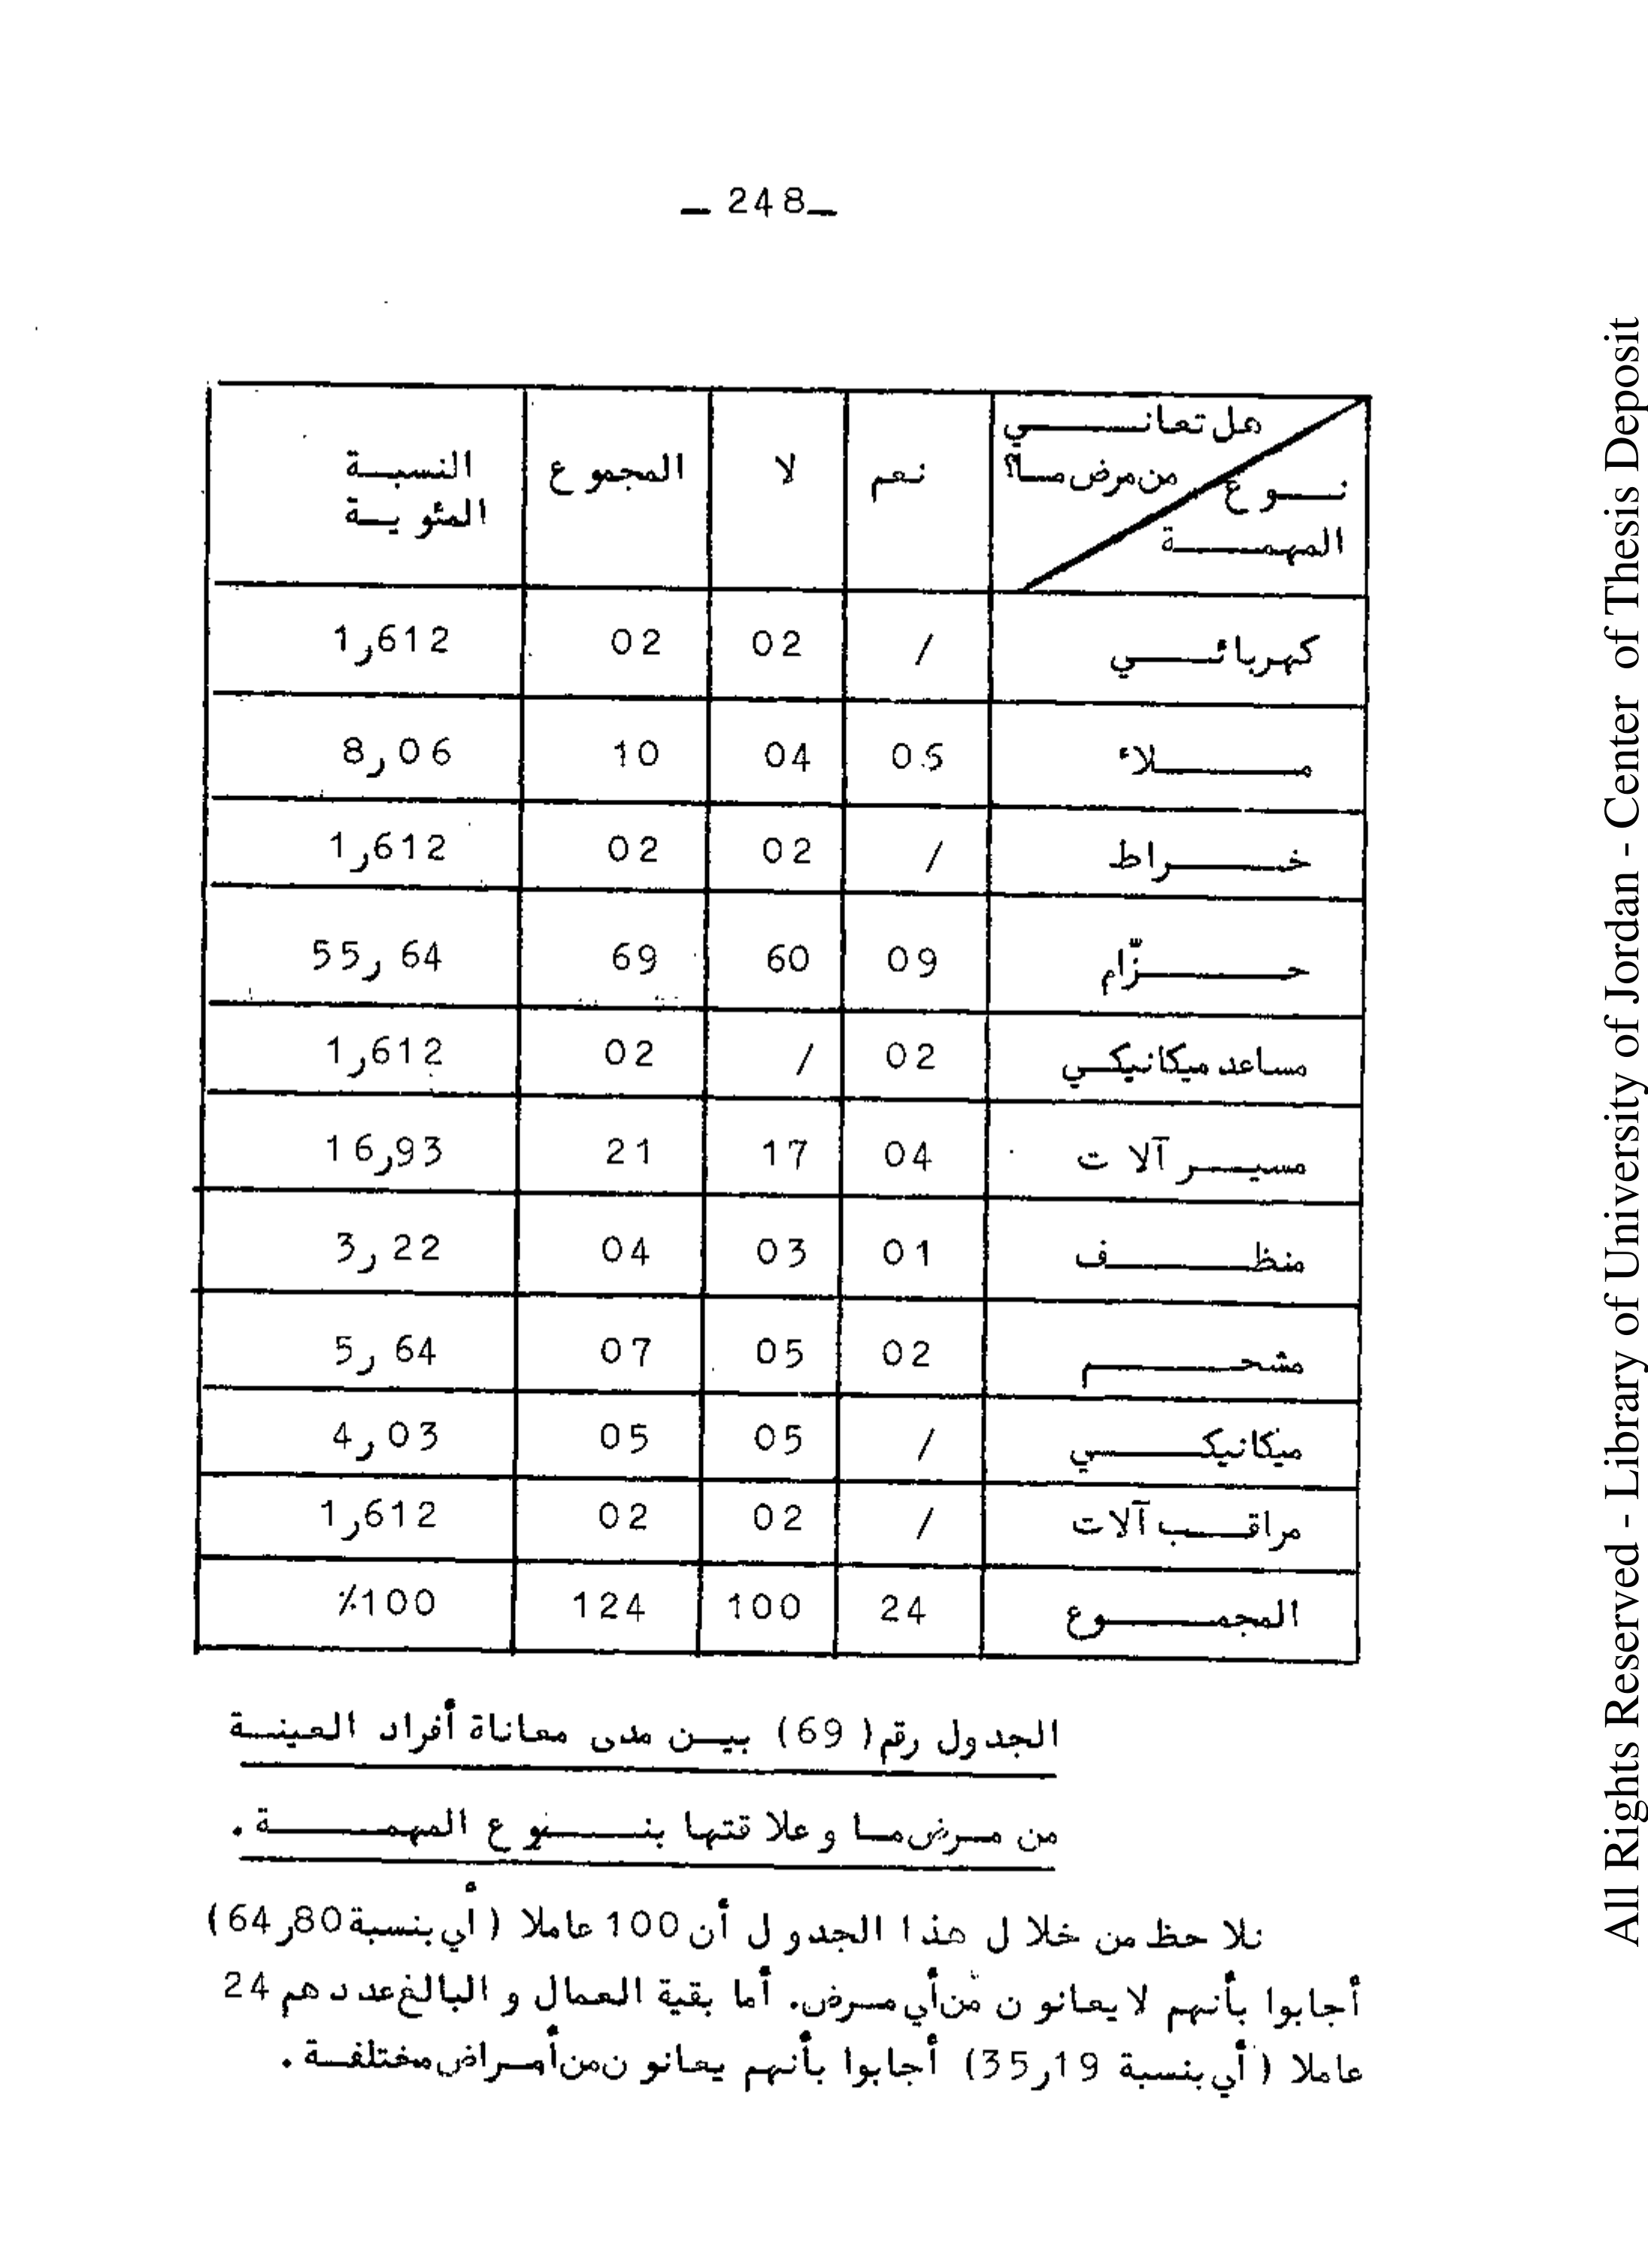 _ 248_
هل تعاني من مرض ما؟ / نوع المهمة | نعم | لا | المجموع | النسبة المئوية
كهربائي | / | 02 | 02 | 1,612
ملاء | 05 | 04 | 10 | 8,06
خراط | / | 02 | 02 | 1,612
حزّام | 09 | 60 | 69 | 55,64
مساعد ميكانيكي | 02 | / | 02 | 1,612
مسير آلات | 04 | 17 | 21 | 16,93
منظف | 01 | 03 | 04 | 3,22
مشحم | 02 | 05 | 07 | 5,64
ميكانيكي | / | 05 | 05 | 4,03
مراقب آلات | / | 02 | 02 | 1,612
المجموع | 24 | 100 | 124 | 100٪
الجدول رقم (69) يبين مدى معاناة أفراد العينة
من مرض ما وعلاقتها بنوع المهمة.
نلاحظ من خلال هذا الجدول أن 100 عاملا (أي بنسبة 80,64)
أجابوا بأنهم لا يعانون من أي مرض. أما بقية العمال و البالغ عددهم 24
عاملا (أي بنسبة 19,35) أجابوا بأنهم يعانون من أمراض مختلفة.
All Rights Reserved - Library of University of Jordan - Center of Thesis Deposit